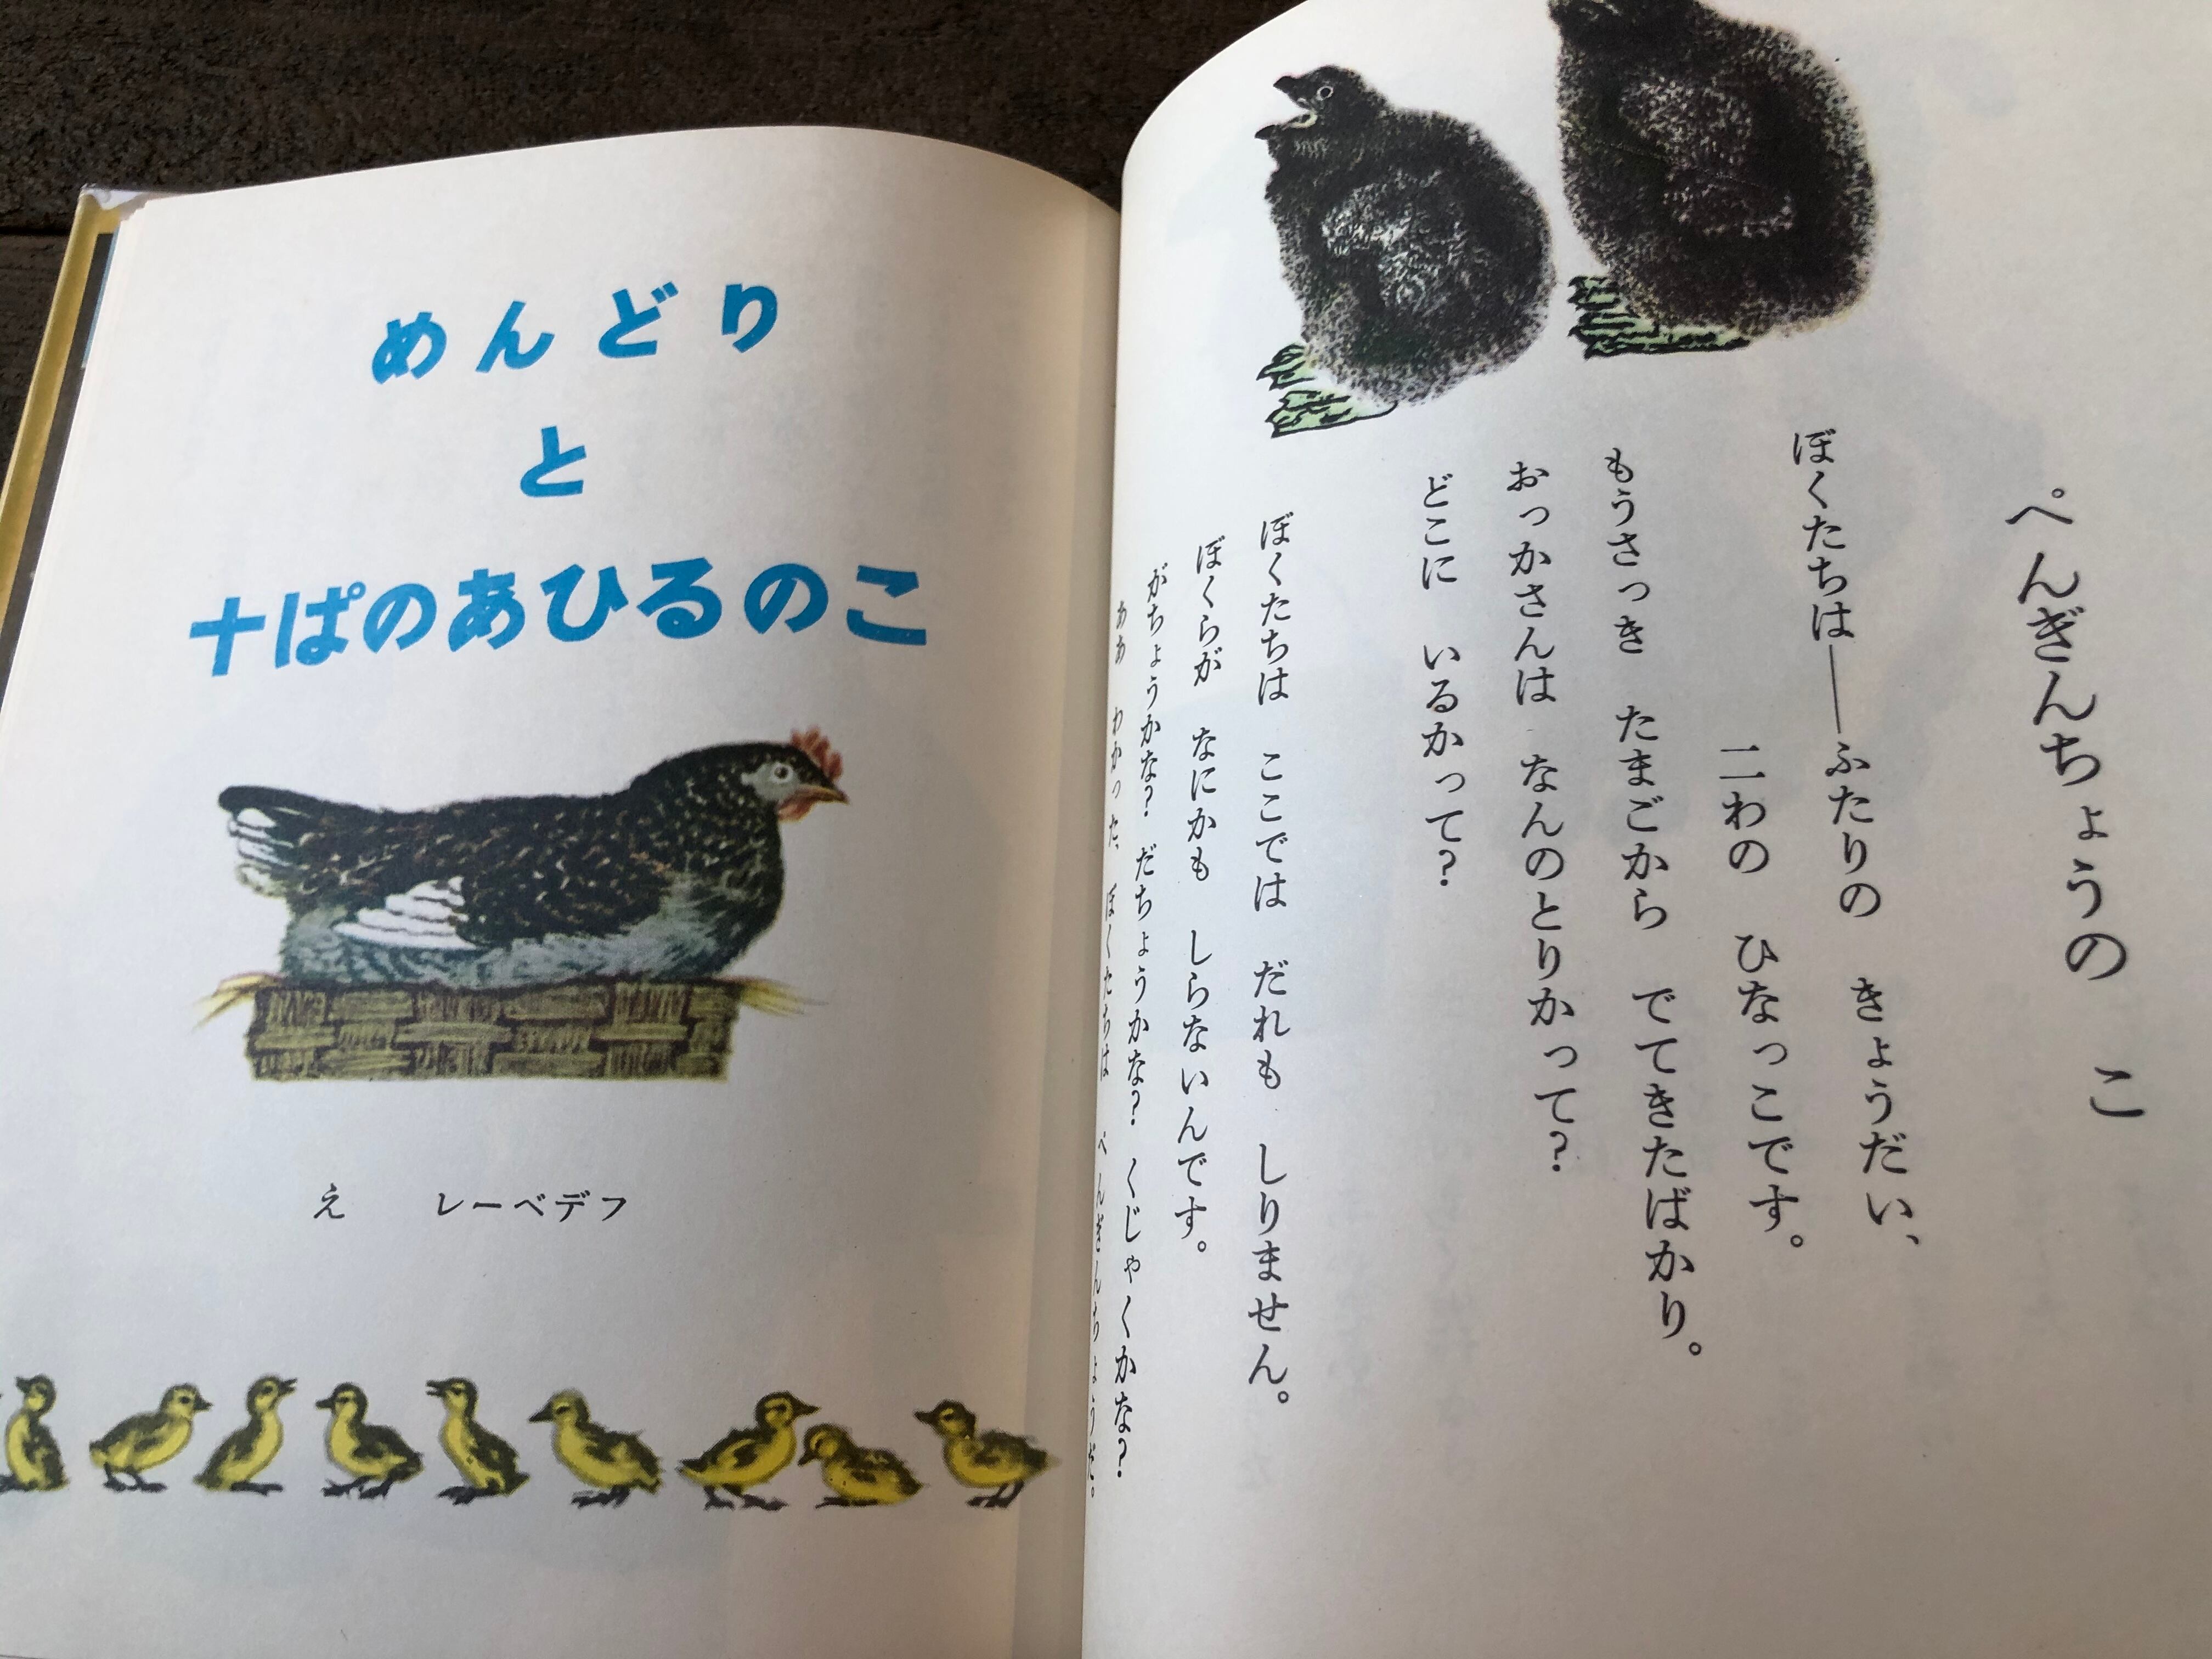 ぺんぎんちょうの　こ
ぼくたちは――ふたりの　きょうだい、
二わの　ひなっこです。
もうさっき　たまごから　でてきたばかり。
おっかさんは　なんのとりかって？
どこに　いるかって？
ぼくたちは　ここでは　だれも　しりません。
ぼくらが　なにかも　しらないんです。
がちょうかな？　だちょうかな？　くじゃくかな？
ああ　わかった、ぼくたちは　ぺんぎんちょうだ。
めんどり
と
十ぱのあひるのこ
え　レーベデフ